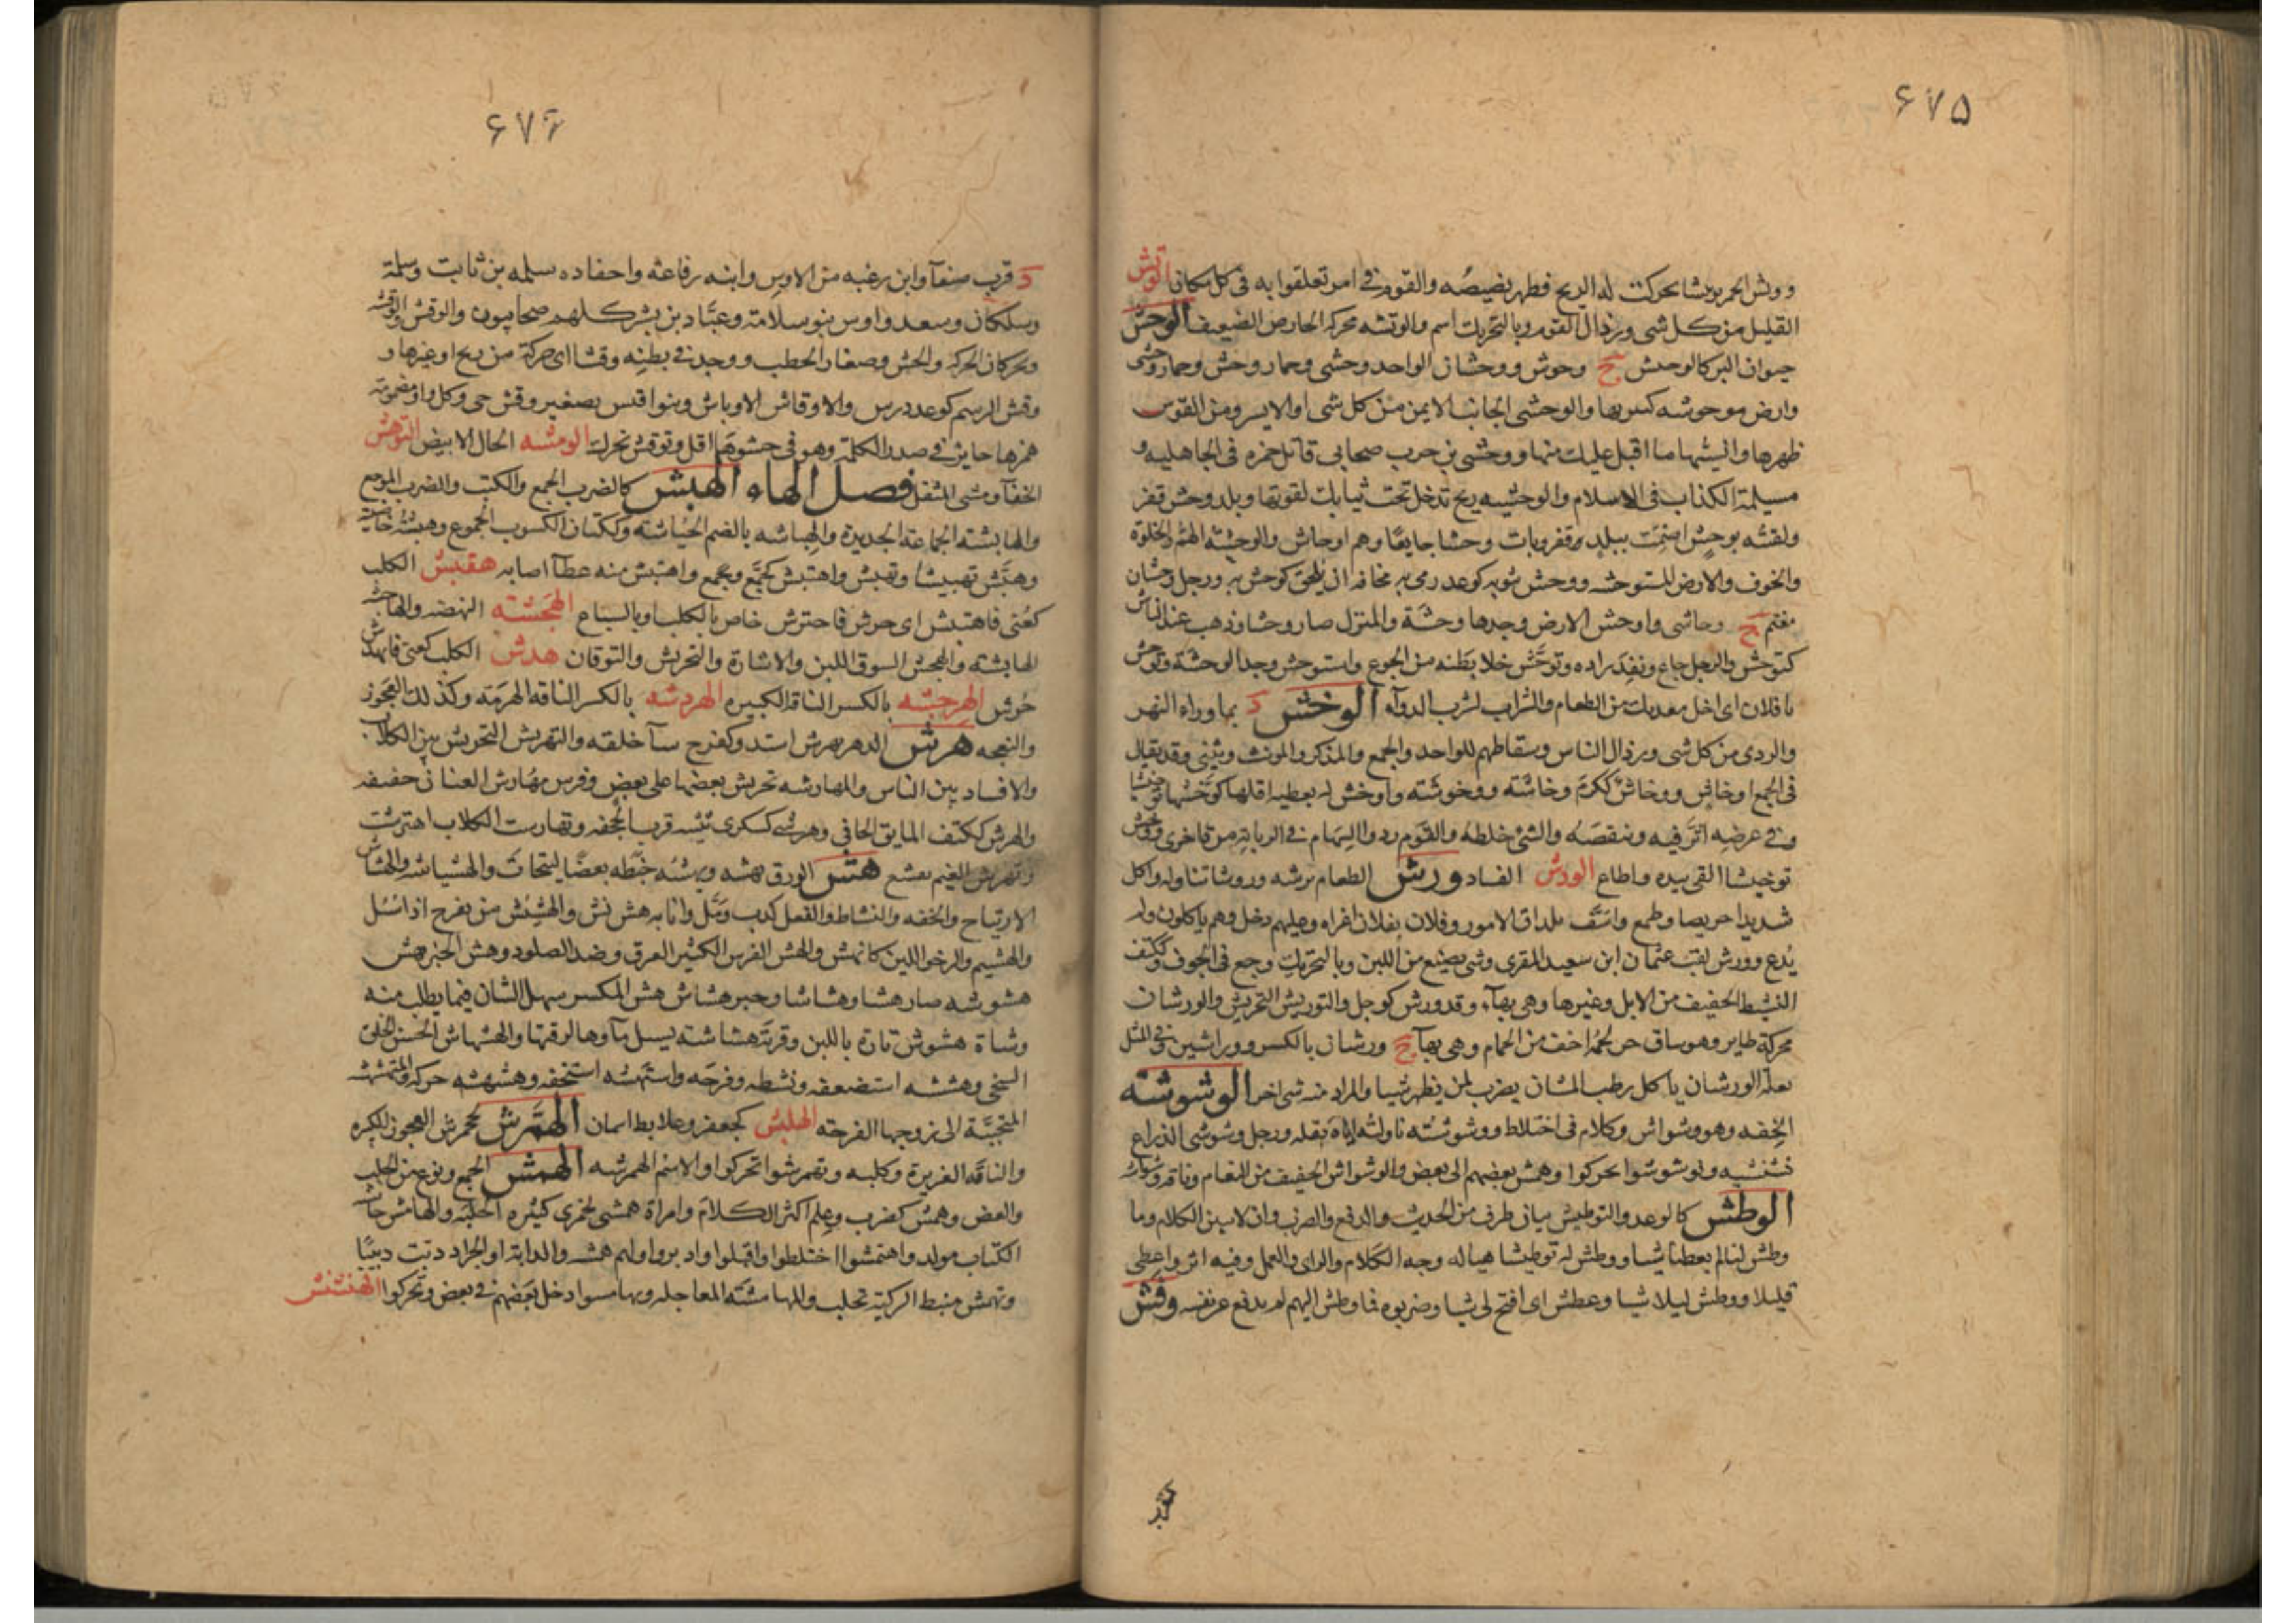 ۶۷۵
ووبش الجمر وبشا تحركت له الريح فظهر بصيصه والقوم فى امر تعلقوا به فى كل مكان الوتش
القليل من كل شى ورذال القوم وبالتحريك اسم والوتشه محركة الحارض الضعيف الوحش
حيوان البر كالوحيش ج وحوش ووحشان الواحد وحشى وحمار وحش وحمار وحشى
وارض موحوشه كثيرتها والوحشى الجانب الايمن من كل شى او الايسر ومن القوس
ظهرها وانسيها ما اقبل عليك منها ووحشى بن حرب صحابى قاتل حمزه فى الجاهليه و
مسيلمة الكذاب فى الاسلام والوحشيه ريح تدخل تحت ثيابك لقوتها وبلد وحش قفر
ولقيته بوحش اصمت ببلد قفر وبات وحشا جايعا وهم اوحاش والوحشة الهم والخلوة
والخوف والارض المستوحشه ووحش بثوبه كوعد رمى به مخافة ان يلحق كوحش به ورجل وحشان
مغتم ج وحاشى واوحش الارض وجدها وحشة والمنزل صار وحشا وذهب عنه الناس
كتوحش والرجل جاع ونفد زاده وتوحش خلا بطنه من الجوع واستوحش وجد الوحشة وتوحش
يا فلان اى اخل معدتك من الطعام والشراب لشرب الدوآء الوخش د بما وراء النهر
والردى من كل شى ورذال الناس وسقاطهم للواحد والجمع والمذكر والمونث ويثنى وقد يقال
فى الجمع اوخاش ووخاش ككرم وخاشة ووخوشة واوخش له بعطية اقلها كوخشها توخيشا
وفى عرضه اثر فيه وتنقصه والشئ خلطه والقوم ردوا السهام فى الربابة مرة اخرى ووخش
توخيشا القى بيده واطاع الودش الفساد ورش الطعام يرشه وروشا تناوله واكل
شديدا حريصا وطمع واسف لمداق الامور وفلان بفلان اغراه وعليهم دخل وهم ياكلون ولم
يدع وورش لقب عثمان ابن سعيد المقرى وشى يصنع من اللبن وبالتحريك وجع فى الجوف وككتف
النشيط الخفيف من الابل وغيرها وهى بهآء وقد ورش كوجل والتوريش التحريش والورشان
محركة طاير وهو ساق حر لحمه اخف من الحمام وهى بهآ ج ورشان بالكسر ووراشين وفى المثل
بعلة الورشان ياكل رطب المشان يضرب لمن يظهر شيا والمراد منه شى اخر الوشوشة
الخفه وهو وشواش وكلام فى اختلاط ووشوشته ناولته اياه بقله ورجل وشوشى الذراع
وتوشوشوا تحركوا وهمش بعضهم الى بعض والوشواش الخفيف من النعام وناقة وشواشه
الوطش كالوعد والتوطيش بيان طرف من الحديث والدفع والضرب وان لا يبين الكلام وما
وطش لنا لم يعطنا شيا ووطش له توطيشا هيا له وجه الكلام والراى والعمل وفيه اثر واعطى
قليلا ووطش ليلا شيا وعطش اى افتح لى شيا وضربوه فما وطش اليهم لم يدفع عن نفسه وقش
۶۷۶
د قرب صنعآ وابن زغبه من الاوس وابنه رفاعة واحفاده سلمه بن ثابت وسلمة
وسلكان وسعد واوس بنو سلامة وعباد بن بشر كلهم صحابيون والوقش والوقشة
ويحركان الحركة والحس وصغار الحطب ووجد فى بطنه وقشا اى حركة من ريح او غيرها و
وقش الرسم كوعد درس والاوقاش الاوباش وبنو اقيس تصغير وقش حى وكل واو مضمومة
همزها جايز فى صدر الكلمة وهو فى حشوها اقل وتوقش تحرك الومشه الخال الابيض التوهش
الحفآ ومشى المثقل فصل الهاء الهبش كالضرب الجمع والكسب والضرب الموجع
والهابشة الجماعة الجديدة والهباشه بالضم الحباشة وككتان الكسوب الجموع
وهبش تهبيشا وتهبش واهتبش كجمع وتجمع واهتبش منه عطآ اصابه هقبش الكلب
كعنى فاهتبش اى حرش فاحترش خاص بالكلب او بالسباع الهجشة النهضه والهاجشه
الهابشة والهجش السوق اللين والاشارة والتحريش والتوقان هدش الكلب كعنى فانهدش
حرش الهرجشه بالكسر الناقة الكبيره الهردشه بالكسر الناقة الهرمة وكذلك العجوز
والنعجه هرش الدهر يهرش اشتد وكفرح سآ خلقه والتهريش التحريش بين الكلاب
والافساد بين الناس والمهارشه تحريش بعضها على بعض وفرس مهارش العنان خفيفه
والهرش ككتف المايق الجافى وهرشى كسكرى ثنية قرب الجحفه وتهارشت الكلاب اهترشت
وتهرش الغيم تقشع هش الورق يهشه ويهشه خبطه بعصا ليتحات والهشاشه والهشاش
الارتياح والخفه والنشاط والفعل كدب ومل وانا به هش بش والهشيش من يفرح اذا سئل
والهشيم والرخو اللين كالهش والهش الفرس الكثير العرق وضد الصلود وهش الخبز يهش
هشوشه صار هشا وهشاشا وخبز هشاش هش المكسر سهل الشان فيما يطلب منه
وشاة هشوش ثارة باللبن وقربة هشاشة يسيل مآوها لرقتها والهشهاش الحسن الخلق
السخى وهششه استضعفه ونشطه وفرحه واستهشه استخفه وهشهشه حركه والمتهشهشه
المتحببة الى زوجها الفرحه الهلبش كجعفر وعلابط اسمان الهمرش كجحمرش العجوز الكبيره
والناقة الغزيرة وكلبه وتهمرشوا تحركوا والاسم الهمرشه الهمش الجمع ونوع من الحلب
والعض وهمش كضرب وعلم اكثر الكلام وامراة همشى كجمزى كثيره الجلبة والهامش حاشية
الكتاب مولد واهتمشوا اختلطوا واقبلوا وادبروا ولهم همشه والدابة او الجراد دبت دبيبا
وتهمش منبط الركية تحلب والمهامشة المعاجله وتهامشوا دخل بعضهم فى بعض وتحركوا الهنشنش